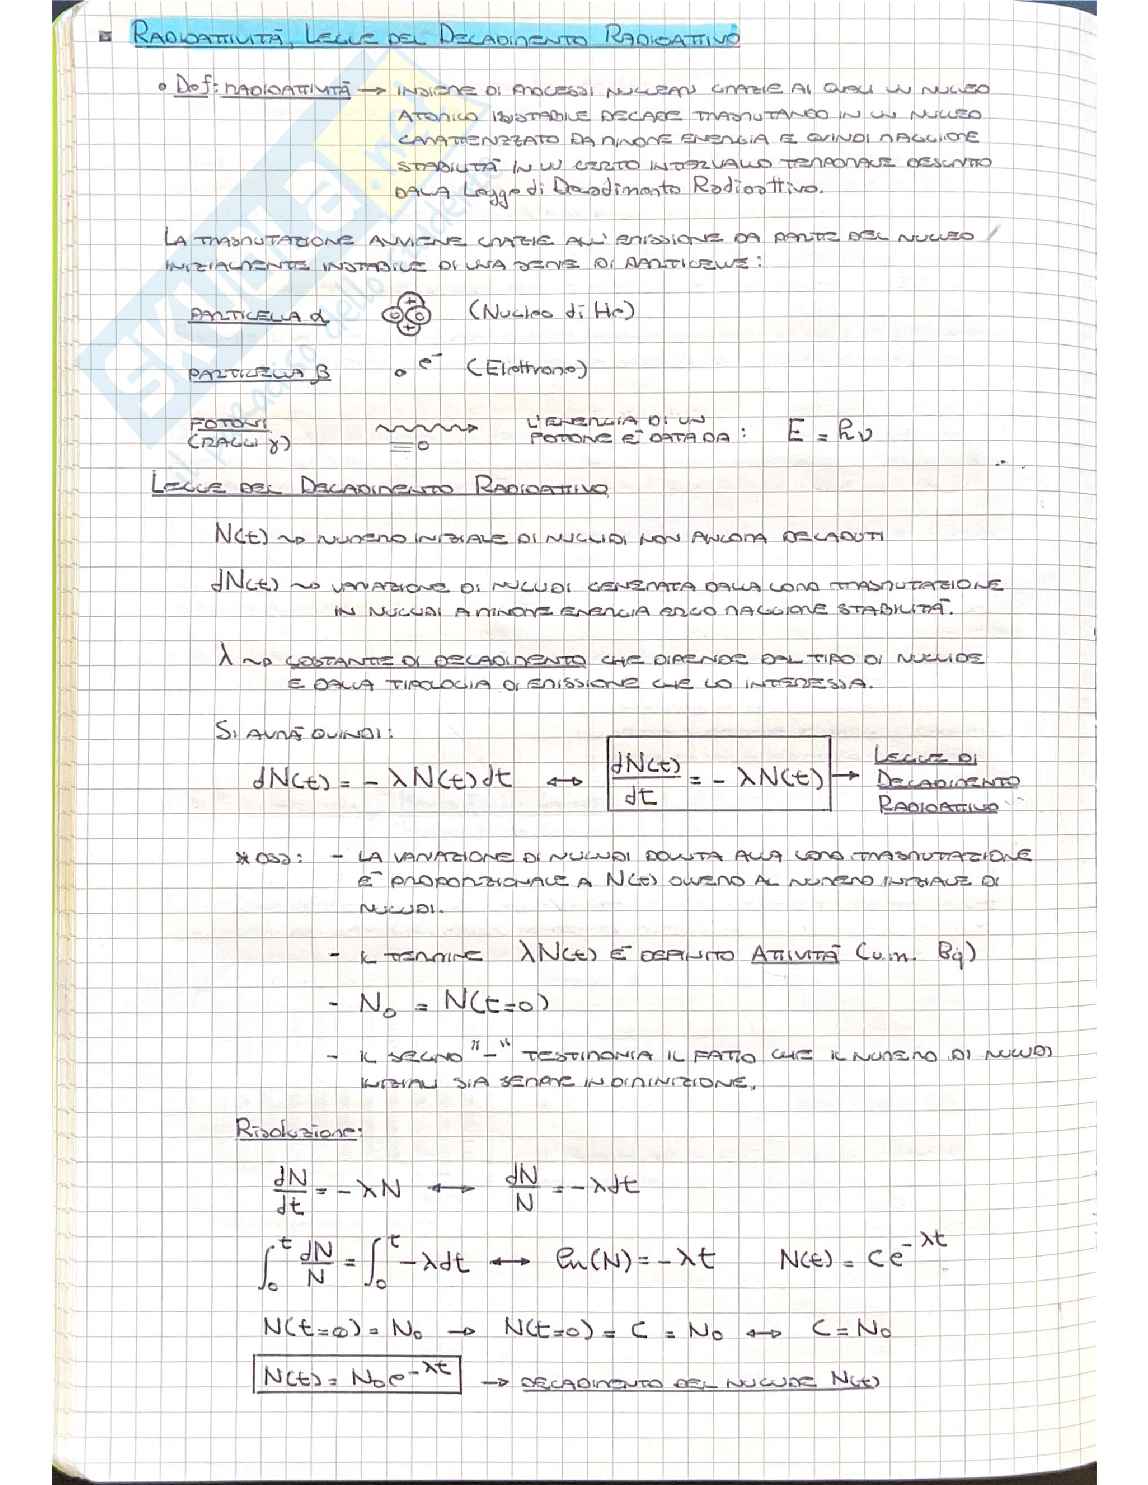 RADIOATTIVITÀ, LEGGE DEL DECADIMENTO RADIOATTIVO
Def: RADIOATTIVITÀ → INSIEME DI PROCESSI NUCLEARI GRAZIE AI QUALI UN NUCLEO
ATOMICO INSTABILE DECADE TRASMUTANDO IN UN NUCLEO
CARATTERIZZATO DA MINORE ENERGIA E QUINDI MAGGIORE
STABILITÀ IN UN CERTO INTERVALLO TEMPORALE DESCRITTO
DALLA Legge di Decadimento Radioattivo.
LA TRASMUTAZIONE AVVIENE GRAZIE ALL'EMISSIONE DA PARTE DEL NUCLEO
INIZIALMENTE INSTABILE DI UNA SERIE DI PARTICELLE:
PARTICELLA α (Nucleo di He)
PARTICELLA β e⁻ (Elettrone)
FOTONI (RAGGI γ) L'ENERGIA DI UN FOTONE E' DATA DA: E = hν
LEGGE DEL DECADIMENTO RADIOATTIVO
N(t) ~> NUMERO INIZIALE DI NUCLIDI NON ANCORA DECADUTI
dN(t) ~> VARIAZIONE DI NUCLIDI GENERATA DALLA LORO TRASMUTAZIONE
IN NUCLIDI A MINORE ENERGIA ERGO MAGGIORE STABILITÀ.
λ ~> COSTANTE DI DECADIMENTO CHE DIPENDE DAL TIPO DI NUCLIDE
E DALLA TIPOLOGIA DI EMISSIONE CHE LO INTERESSA.
SI AVRÀ QUINDI:
dN(t) = - λN(t)dt ↔ dN(t)/dt = - λN(t) → LEGGE DI DECADIMENTO RADIOATTIVO
* OSS: - LA VARIAZIONE DI NUCLIDI DOVUTA ALLA LORO TRASMUTAZIONE
E' PROPORZIONALE A N(t) OVVERO AL NUMERO INIZIALE DI
NUCLIDI.
- IL TERMINE λN(t) E' DEFINITO ATTIVITÀ (u.m. Bq)
- N₀ = N(t=0)
- IL SEGNO "-" TESTIMONIA IL FATTO CHE IL NUMERO DI NUCLIDI
INIZIALI SIA SEMPRE IN DIMINIZIONE.
Risoluzione:
dN/dt = -λN ↔ dN/N = -λdt
∫₀ᵗ dN/N = ∫₀ᵗ -λdt ↔ ln(N) = -λt N(t) = Ce^-λt
N(t=0) = N₀ → N(t=0) = C = N₀ ↔ C = N₀
N(t) = N₀e^-λt → DECADIMENTO DEL NUCLIDE N(t)